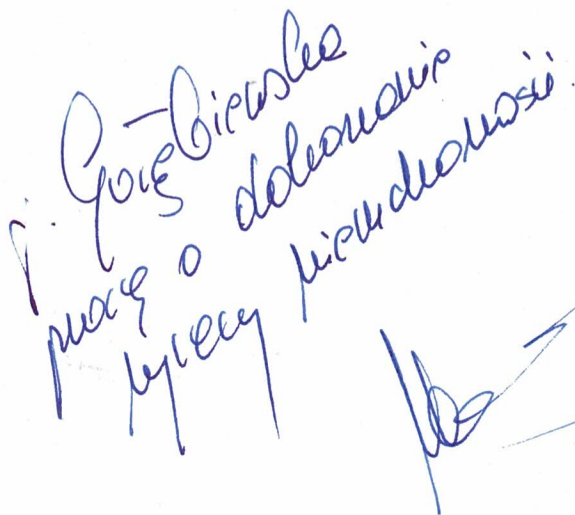 p. Gołębiewska
proszę o dokonanie
wyceny nieruchomości.